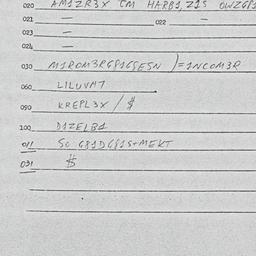 020 AM1ZR3X CM HARB1, Z1S OWZGP1
021 — 022 —
023 —
024 —
030 M1ROM3RGP1GSESN )=1NCOM3R
060 LILUVM7
090 KREPL3X / $
100 D1ZELB1
011 SC G81DG81S+MEKT
031 $